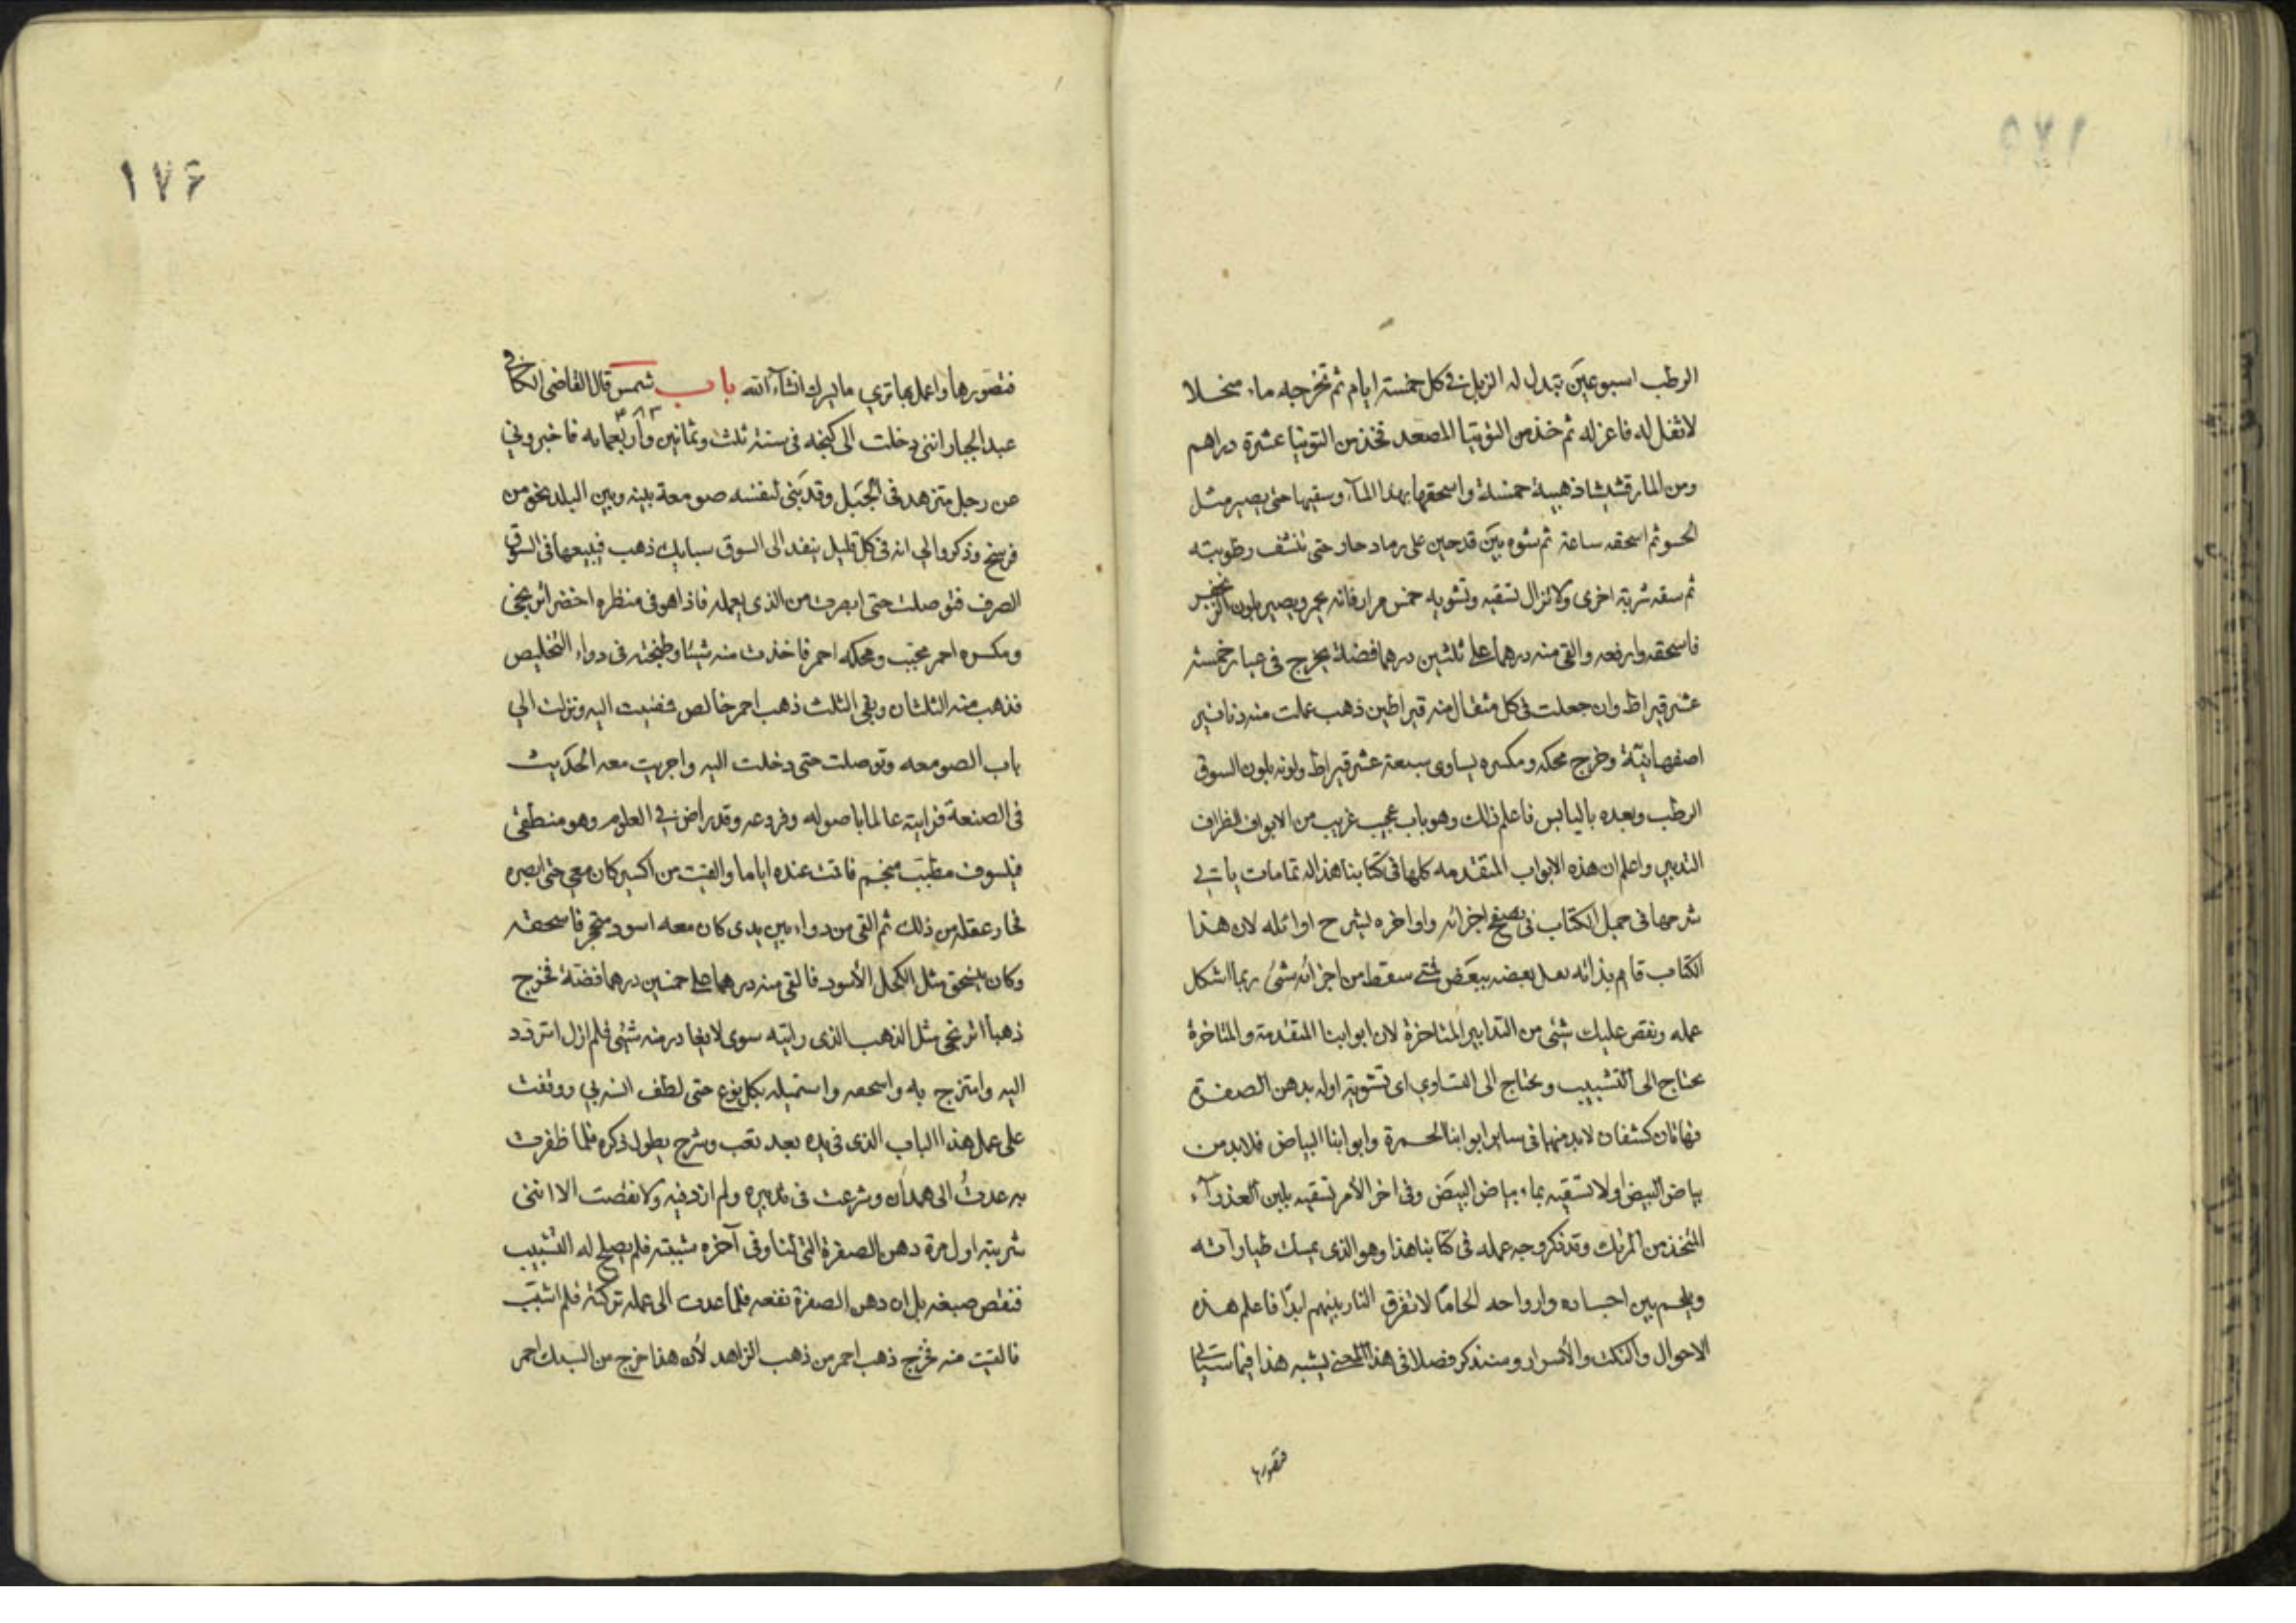 الرطب اسبوعين تبدل له الزبل فى كل خمسة ايام ثم تخرجه ماء منحلا
لا ثفل له فاعزله ثم خذ من التوتيا المصعد تخذ من التوتيا عشرة دراهم
ومن المارقشيشا ذهبية خمسة واسحقها بهذا المآء وسقيها حتى يصير مثل
الحسو ثم اسحقه ساعة ثم شوه بين قدحين على رماد حار حتى تنشف رطوبته
ثم سقه شربة اخرى ولا تزال تسقيه وتشويه خمس مرار فانه يحمر ويصير بلون الزنجفر
فاسحقه وارفعه والقى منه درهما على ثلثين درهما فضة يخرج فى عيار خمسة
عشر قيراط وان جعلت فى كل مثقال منه قيراطين ذهب عملت منه دنانير
اصفهانية وخرج محكه ومكسره يساوى سبعة عشر قيراط ولونه بلون السوقى
الرطب وبعده باليابس فاعلم ذلك وهو باب عجيب غريب من الابواب الظراف
التدبير واعلم ان هذه الابواب المتقدمه كلها فى كتابنا هذا له تمامات ياتى
شرحها فى جمل الكتاب فى اجزائه واواخره يشرح اوائله لان هذا
الكتاب قايم بذاته بعضه ببعض متى سقط من اجزائه شئ ربما اشكل
عمله ونقص عليك شئى من التدابير المتاخرة لان ابوابنا المتقدمة والمتاخرة
يحتاج الى التشبيب ويحتاج الى التساوي اى تشويته اوله بدهن الصفرة
فهاتان كشفان لابد منهما فى ساير ابوابنا الحمرة وابوابنا البياض فلابد من
بياض البيض اولا تسقيه بماء بياض البيض وفى اخر الأمر تسقيه بلبن العذرآء
المتخذ من المرتك وقد ذكر وجه عمله فى كتابنا هذا وهو الذى يمسك طياراته
ويلحم بين اجساده وارواحه الحامًا لا تفرق النار بينهم ابدًا فاعلم هذه
الاحوال والنكت والأسرار وسنذكر فصلا فى هذا يشبه هذا فيما سياتى
فتصورها
١٧۶
فتصورها واعمل بها ترى ما يسرك انشآء الله باب شمس قال القاضى
عبد الجبار اننى دخلت الى كنجه فى سنة ثلث وثمانين وأربعمايه فاخبرونى
عن رجل متزهد فى الجبل وقد بنى لنفسه صومعة بينه وبين البلد نحو من
فرسخ وذكروا لي انه فى كل قليل ينفد الى السوق سبايك ذهب فيبيعها فى السوق
الصرف فتوصلت حتى ابصرت من الذى يعمله فاذا هو فى منظره اخضر اترنجى
ومكسره احمر محبب ومحكه احمر فاخذت منه شيئا وطبخته فى دواء التخليص
فذهب منه الثلثان وبقى الثلث ذهب احمر خالص فمضيت اليه ونزلت الى
باب الصومعه وتوصلت حتى دخلت اليه واجريت معه الحديث
فى الصنعة فرايته عالما باصوله وفروعه وقد راض فى العلوم وهو منطقى
فيلسوف مطبب منجم فاقت عنده اياما والقيت من اكسير كان معي حتى ابصره
فحار عقله من ذلك ثم القى من دواء بين يدى كان معه اسود فاسحقه
وكان ينسحق مثل الكحل الأسود فالقى منه درهما على خمسين درهما فضة فخرج
ذهبا اترنجى مثل الذهب الذى رايته سوى لا يغادر منه شئى فلم ازل اتردد
اليه وامتزج به واستميله بكل نوع حتى لطف الله بي ووقفت
على عمل هذا الباب الذى فى يده بعد تعب وشرح يطول ذكره فلما ظفرت
به عدت الى همدان وشرعت فى تدبيره ولم ازد فيه ولا نقصت الا اننى
شربته اول مرة دهن الصفرة التى لنا وفى آخره شببته فلم يصلح له التشبيب
فنقص صبغه بل ان دهن الصفرة نفعه فلما عدت الى عمله تركته فلم اشبب
فالقيت منه فخرج ذهب احمر من ذهب الزاهد لأن هذا خرج من السبك احمر